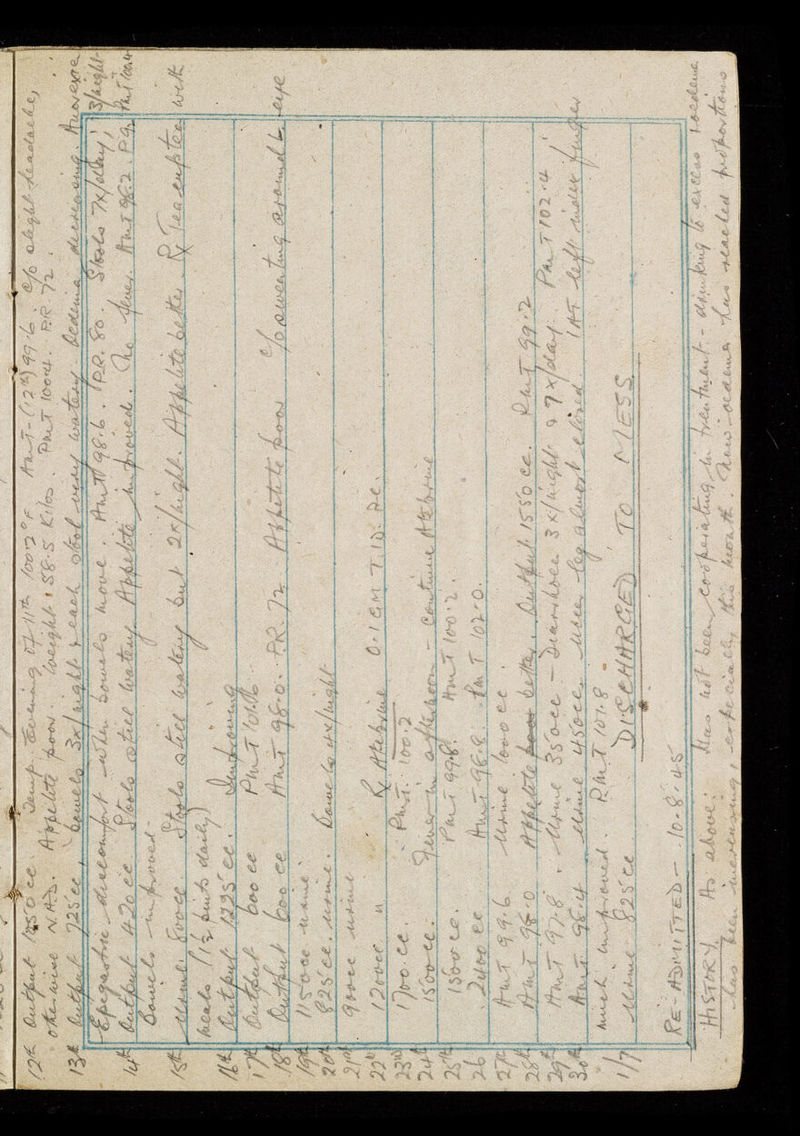 12th Output 1050 cc. Temp. Evening of 11th 100.2°F Am T-(12th) 99.6. c/o slight headache,
otherwise N.A.D. Appetite poor. Weight: 58.5 Kilos. Pm T 100.4. P.R. 72.
13th Output 725 cc, bowels 3x/night & each stool very watery Oedema decreasing. Anorexia
Epigastric discomfort when bowels move. Am T 98.6. P.R. 80. Stools 7x/day; 3/night
14th Output 420 cc Stools still watery Appetite improved. No fever. Am T 98.2. P.R. Pm T 100.4
Bowels improved.
15th Urine: 800cc Stools still watery but 2x/night. Appetite better. Rx Tea cup tea with
meals (1½ pints daily)
16th Output 1225 cc. Improving
17th Output 600 cc Pm T 101.6
18th Output 600 cc Am T 98.0. P.R. 72 Appetite poor c/o sweating around L eye
19th 1150 cc urine.
20th 825 cc. urine. Bowels 4x/night
21st 900cc urine
22nd 1200cc " Rx Atebrine 0.1 GM T.I.D. P.C.
23rd 1700 cc. Pm T. 100.2
24th 1500 cc. Fever in afternoon - continue Atebrine
25th 1500 cc. Pm T 99.8. Am T 100.2.
26 2400 cc Am T 98.8 Pm T 102.0.
27th Am T 99.6 Urine 600 cc.
28th Am T 98.0 Appetite poor better. Output 1550 cc. Pm T 99.2
29th Am T 97.8. Urine 350cc - Diarrhoea 3x/night & 7x/day. Pm T 102.4
30th Am T 98.4 Urine 450cc. Ulcer leg almost closed IAT left index finger
much improved. Pm T 101.8
1/7 Urine 825cc DISCHARGED TO MESS
RE-ADMITTED - 10.8.45
HISTORY As above: Has not been cooperating in treatment - drinking to excess & oedema
has been increasing, especially this month. Now oedema has reached proportions